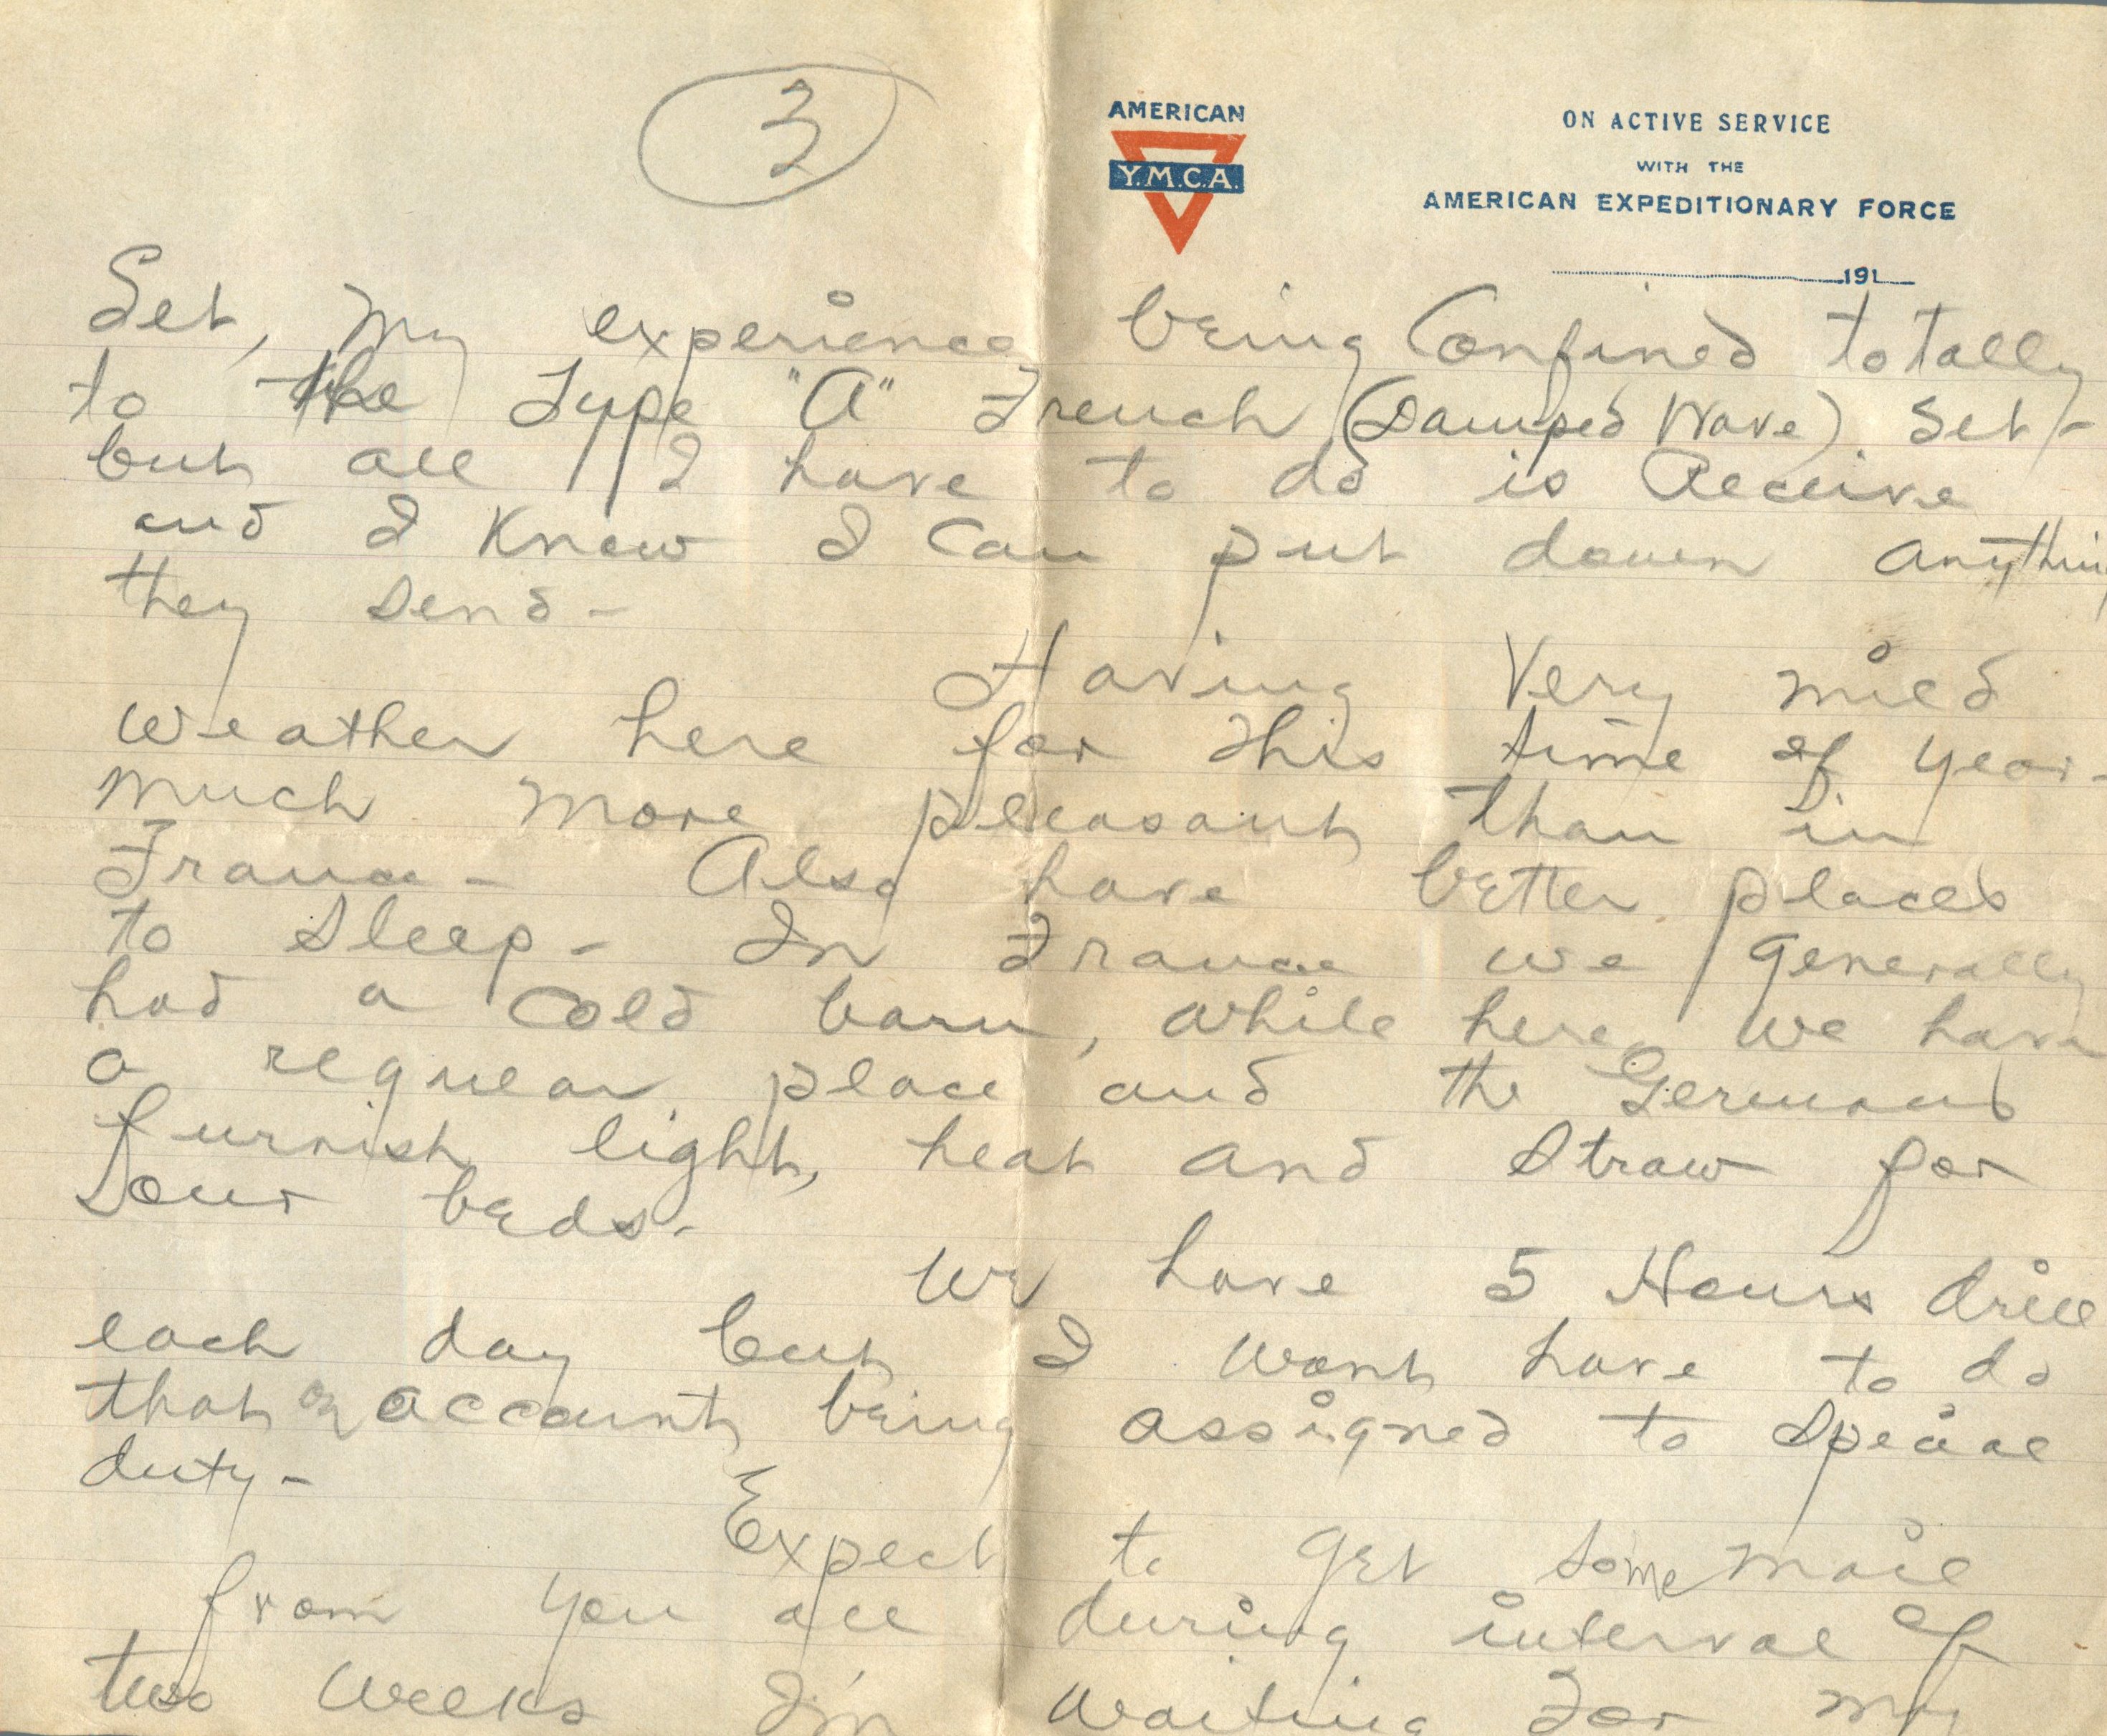 3
AMERICAN
Y.M.C.A.
ON ACTIVE SERVICE
WITH THE
AMERICAN EXPEDITIONARY FORCE
191
Set, my experience being Confined totally
to the Type "A" French (Damped Wave) Set -
but all I have to do is Receive
and I Know I Can put down anything
they send -
Having Very mild
weather here for this time of year -
much more pleasant than in
France - Also have better places
to sleep - In France we generally
had a Cold barn, while here we have
a regular place and the Germans
furnish light, heat and straw for
our beds -
We have 5 Hours drill
each day but I wont have to do
that on account being assigned to special
duty -
Expect to get some mail
from you all during interval of
two weeks I'm waiting for my